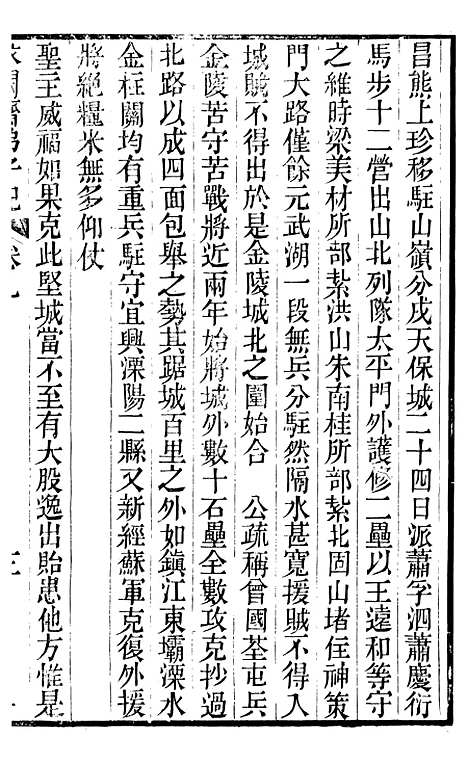 昌熊上珍移駐山嶺分戍天保城二十四日派蕭孚泗蕭慶衍
馬步十二營出山北列隊太平門外護修二壘以王遠和等守
之維時梁美材所部紮洪山朱南桂所部紮北固山堵住神策
門大路僅餘元武湖一段無兵分駐然隔水甚寬援賊不得入
城賊不得出於是金陵城北之圍始合　公疏稱曾國荃屯兵
金陵苦守苦戰將近兩年始將城外數十石壘全數攻克抄過
北路以成四面包舉之勢其踞城百里之外如鎮江東壩溧水
金柱關均有重兵駐守宜興溧陽二縣又新經蘇軍克復外援
將絕糧米無多仰仗
聖王威福如果克此堅城當不至有大股逸出貽患他方惟是
求闕齋弟子記　卷九　三